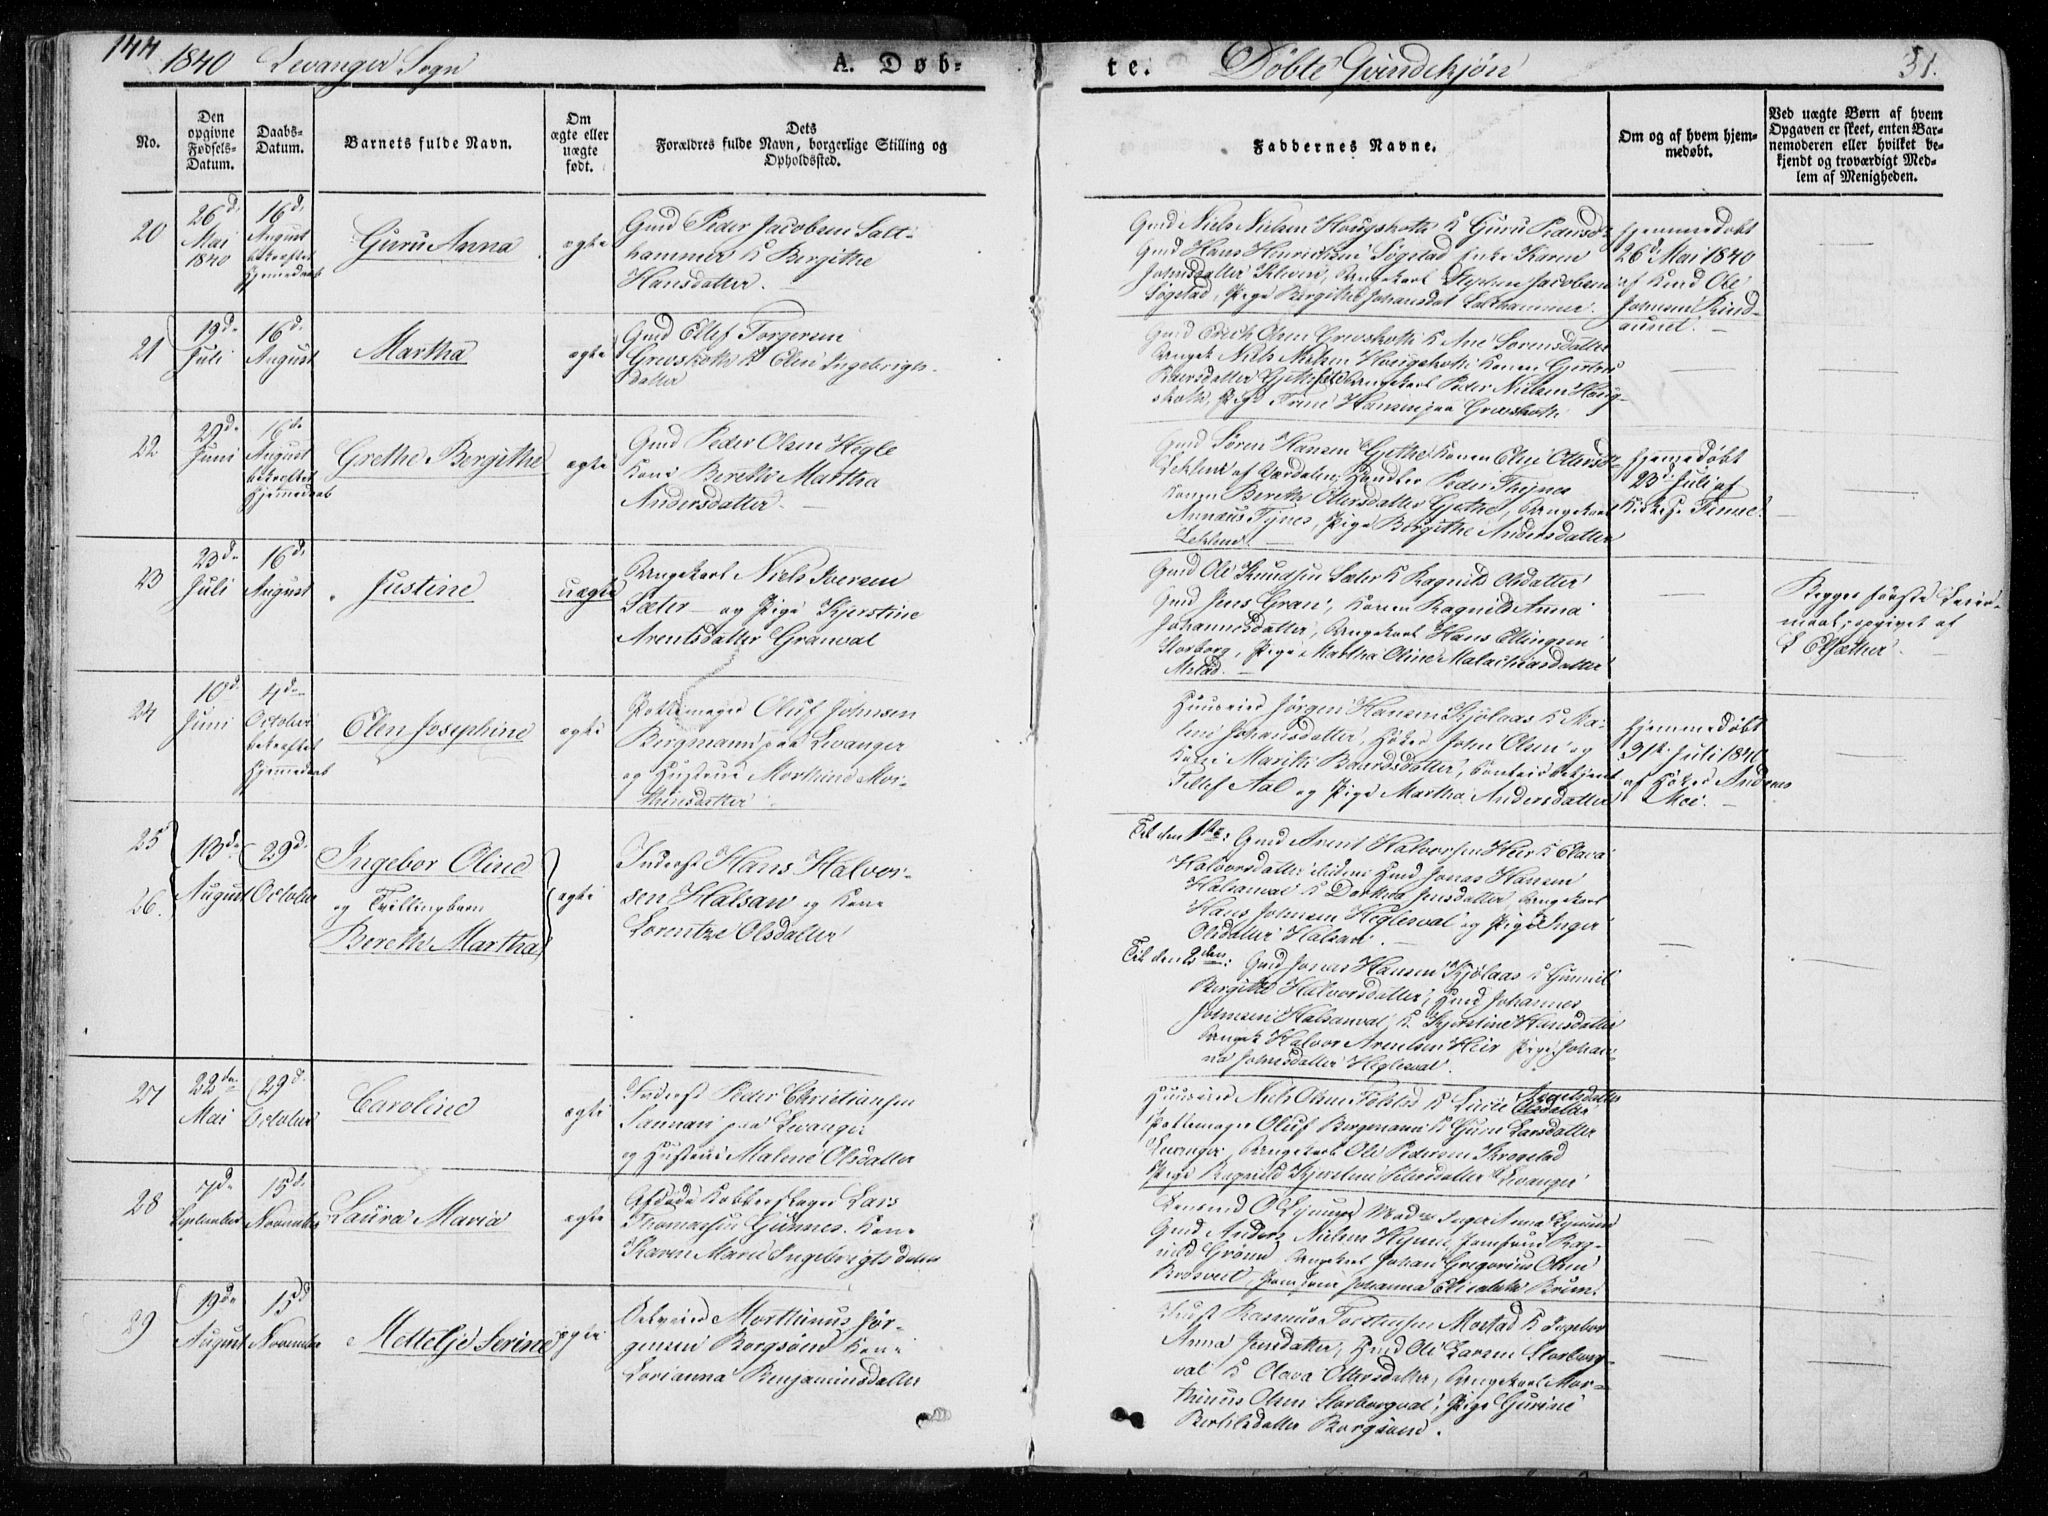 144
1840 Levanger Sogn
A. Døb-
te.
Døbte Qvindekjøn
51.
No.
Den opgivne Fødsels-Datum.
Daabs-Datum.
Barnets fulde Navn.
Om ægte eller uægte født.
Dets
Forældres fulde Navn, borgerlige Stilling og
Opholdssted.
Faddernes Navne.
Om og af hvem hjem-
medøbt.
Ved uægte Børn af hvem
Opgaven er skeet, enten Bar-
nemoderen eller hvilket be-
kjendt og troværdigt Med-
lem af Menigheden.
20
26d.
Mai
1840
16d.
August
bekræftet
Hjemmedaab
Guru Anna
ægte
Gmd Peder Jacobsen Salt-
hammer K Bergithe
Hansdatter.
Gmd Niels Nielsen Hougskott K Guru Pedersd
Gmd Hans Henrichsen Søgstad Enke Karen
Johnsdatter Kleven, Ungekarl Stephen Jacobsen
Søgstad, Pige Bergithe Johansdat Salthammer.
Hjemmedøbt
26d Mai 1840
af Kmd Ole
Johnsen Rind-
aunet.
21
19d.
Juli
16d.
August
Martha
ægte
Gmd Ellef Torgersen
Grevskott K Elen Ingebrigts-
datter
Gmd Erich Olsen Grevskott K Ane Sorensdatter
Ungek Niels Nielsen Hougskott Konen Gjertru
Baarsdatter Ungekarl Peder Nielsen Houg-
skott, Pige Trine Hansen paa Grevskott
22
29d.
Juni
16d.
August
bekræftet
Hjemmedaab
Grethe Bergithe
ægte
Gmd Peder Olsen Hegle
Kone Bereth Martha
Andersdatter.
Gmd Søren Hansen Gjethe Konen Elen Ottersd
Leklem af Værdalen, Handler Peder Thynes
Konen Bereth Ottersdatter Gjethe, Ungekarl
Annæus Tynes, Pige Bergithe Andersdatter
Leklem.
Hjemmedøbt
23d Juli af
Kirkes. Finne.
23
23d.
Juli
16d.
August
Justine
uægte
Ungekarl Niels Iversen
Sæter og Pige Kjerstine
Arentsdatter Granval
Gmd Ole Knudsen Sæter K Ragnild Olsdatter
Gmd Jens Gran, Konen Ragnild Anna
Johannesdatter, Ungekarl Hans Ellingsen
Storborg, Pige Martha Oline Malachiasdatter
Mostad.
Begges første Leier-
maal; opgivet af
L Olsæther.
24
10d
Juni
4d
October
bekræftet
Hjemmedaab
Elen Josephine
ægte
Pottemager Oluf Johnsen
Bergmann paa Levanger
og Hustrue Morthine Mor-
thinsdatter
Huuseier Jørgen Hansen Kjølaas K Ma-
lene Johansdatter, Høker John Olsen og
Kone Marith Baardsdatter, Contoirbetjent
Tellef Aal og Pige Martha Andersdatter
Hjemmedøbt
31te Juli 1840
af Høker Andreas
Moe.
25
26.
13de
August
29d.
October
Ingebor Oline
og Tvillingbarn
Bereth Martha
ægte
Inderst Hans Halvor-
sen Halsan og Kone
Lorentze Olsdatter
Til den 1ste: Gmd Arent Halvorsen Heir K Olava
Halvorsdatter ibidem, Hmd Jonas Hansen
Halsanval K Dorthea Jensdatter, Ungekarl
Hans Johnsen Heglesval og Pige Inger
Olsdatter Halsan.
Til den 2den: Gmd Jonas Hansen Kjølaas K Gunnil
Bergithe Halvorsdatter, Hmd Johannes
Johnsen Halsanval, K. Kjerstine Hansdatter
Ungek Halvor Arentsen Heir Pige Johan-
na Johnsdatter Heglesval.
27
22de
Mai
29d.
October
Caroline
ægte
Inderst Peder Christiansen
Sannan paa Levanger
og Hustrue Malene Olsdatter
Huuseier Niels Olsen K Lucie Angelsdatter
Pottemager Oluf Bergmann K Guru Larsdatter
Levanger, Ungekarl Ole Pedersen Skrogstad
Pige Ragnild Kjerstine Petersdatter Levanger
28
7d.
September
15d.
November
Laura Maria
ægte
Afdøde Kobberslager Lars
Thomassen Gunnes. Kone
Karen Marie Ingebrigtsdatter
Lensmd O Ljunggr Mad. Inger Anna Ljungr
Gmd Anders Nielsen Jomfrue Rag-
nild Grønn Ungekarl Johan Gregorius Olsen
Jomfrue Johanna Elisabeth Brun.
29
19de
August
15d
November
Mettelje Serine
ægte
Selveier Morthinus Jør-
gensen Borgsøen Kone
Lorianna Benjaminsdatter
Rasmus Torstensen Mostad K Ingebor
Anna Jensdatter, Hmd Ole Larsen Storborg-
val K Olava Ottersdatter, Ungekarl Mor-
thinus Olsen Storborgval, Pige Gurine
Bertelsdatter Borgsøen.